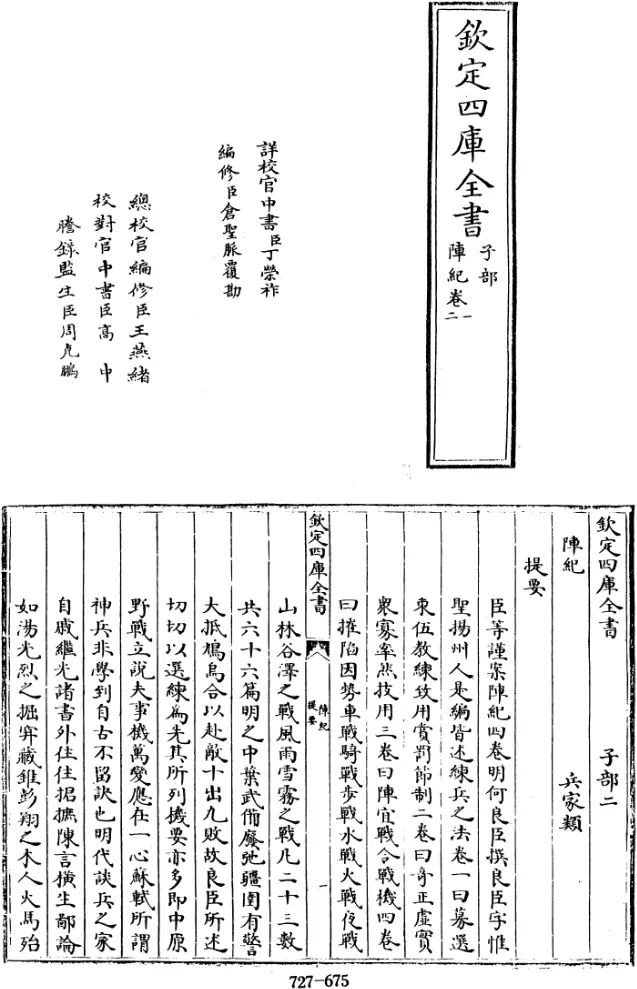 欽定四庫全書
子部
陣紀卷一二
詳校官中書臣丁榮祚
編修臣倉聖脈覆勘
總校官編修臣王燕緒
校對官中書臣高中
謄錄監生臣周元鵬
欽定四庫全書 子部二
陣紀 兵家類
提要
臣等謹案陣紀四卷明何良臣撰良臣字惟
聖揚州人是編皆述練兵之法卷一曰募選
束伍教練致用賞罰節制二卷曰奇正虛實
衆寡率然技用三卷曰陣宜戰令戰機四卷
曰摧陷因勢車戰騎戰步戰水戰火戰夜戰
欽定四庫全書
陣紀
提要
一
山林谷澤之戰風雨雪霧之戰凡二十三數
共六十六篇明之中葉武備廢弛疆圉有警
大抵鳩烏合以赴敵十出九敗故良臣所述
切切以選練為先其所列機要亦多即中原
野戰立說夫事機萬變應在一心蘇軾所謂
神兵非學到自古不留訣也明代談兵之家
自戚繼光諸書外往往捃摭陳言橫生鄙論
如湯光烈之掘穽藏錐彭翔之木人火馬殆
727-675